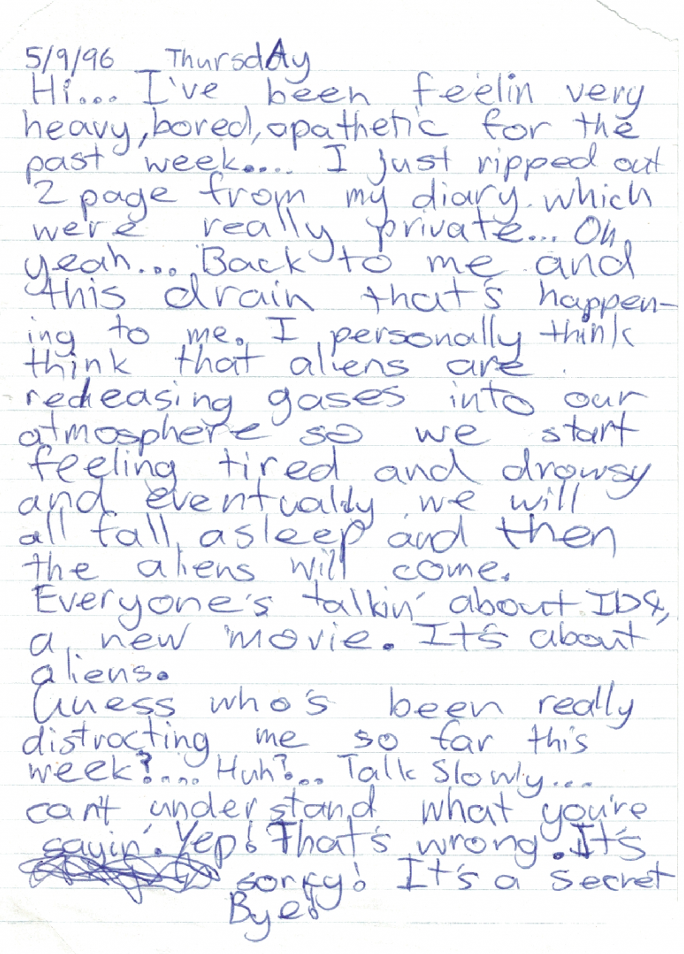 5/9/96 ThursdAy
Hi... I've been feelin very
heavy, bored, apathetic for the
past week.... I just ripped out
2 page from my diary which
were really private... Oh
yeah... Back to me and
this drain that's happen-
ing to me. I personally think
think that aliens are
releasing gases into our
atmosphere so we start
feeling tired and drowsy
and eventually we will
all fall asleep and then
the aliens will come.
Everyone's talkin' about ID4,
a new movie. It's about
aliens.
Guess who's been really
distracting me so far this
week?.... Huh?... Talk Slowly....
can't understand what you're
sayin'. Yep! That's wrong. It's
sorry! It's a secret
Bye!